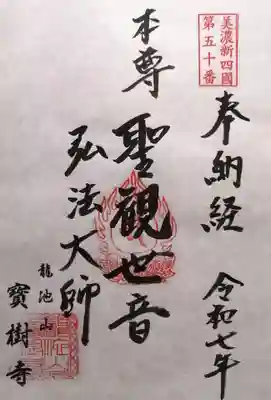 美濃新四國
第五十番
奉納経
令和七年
本尊
聖觀世音
弘法大師
龍池山
寶樹寺